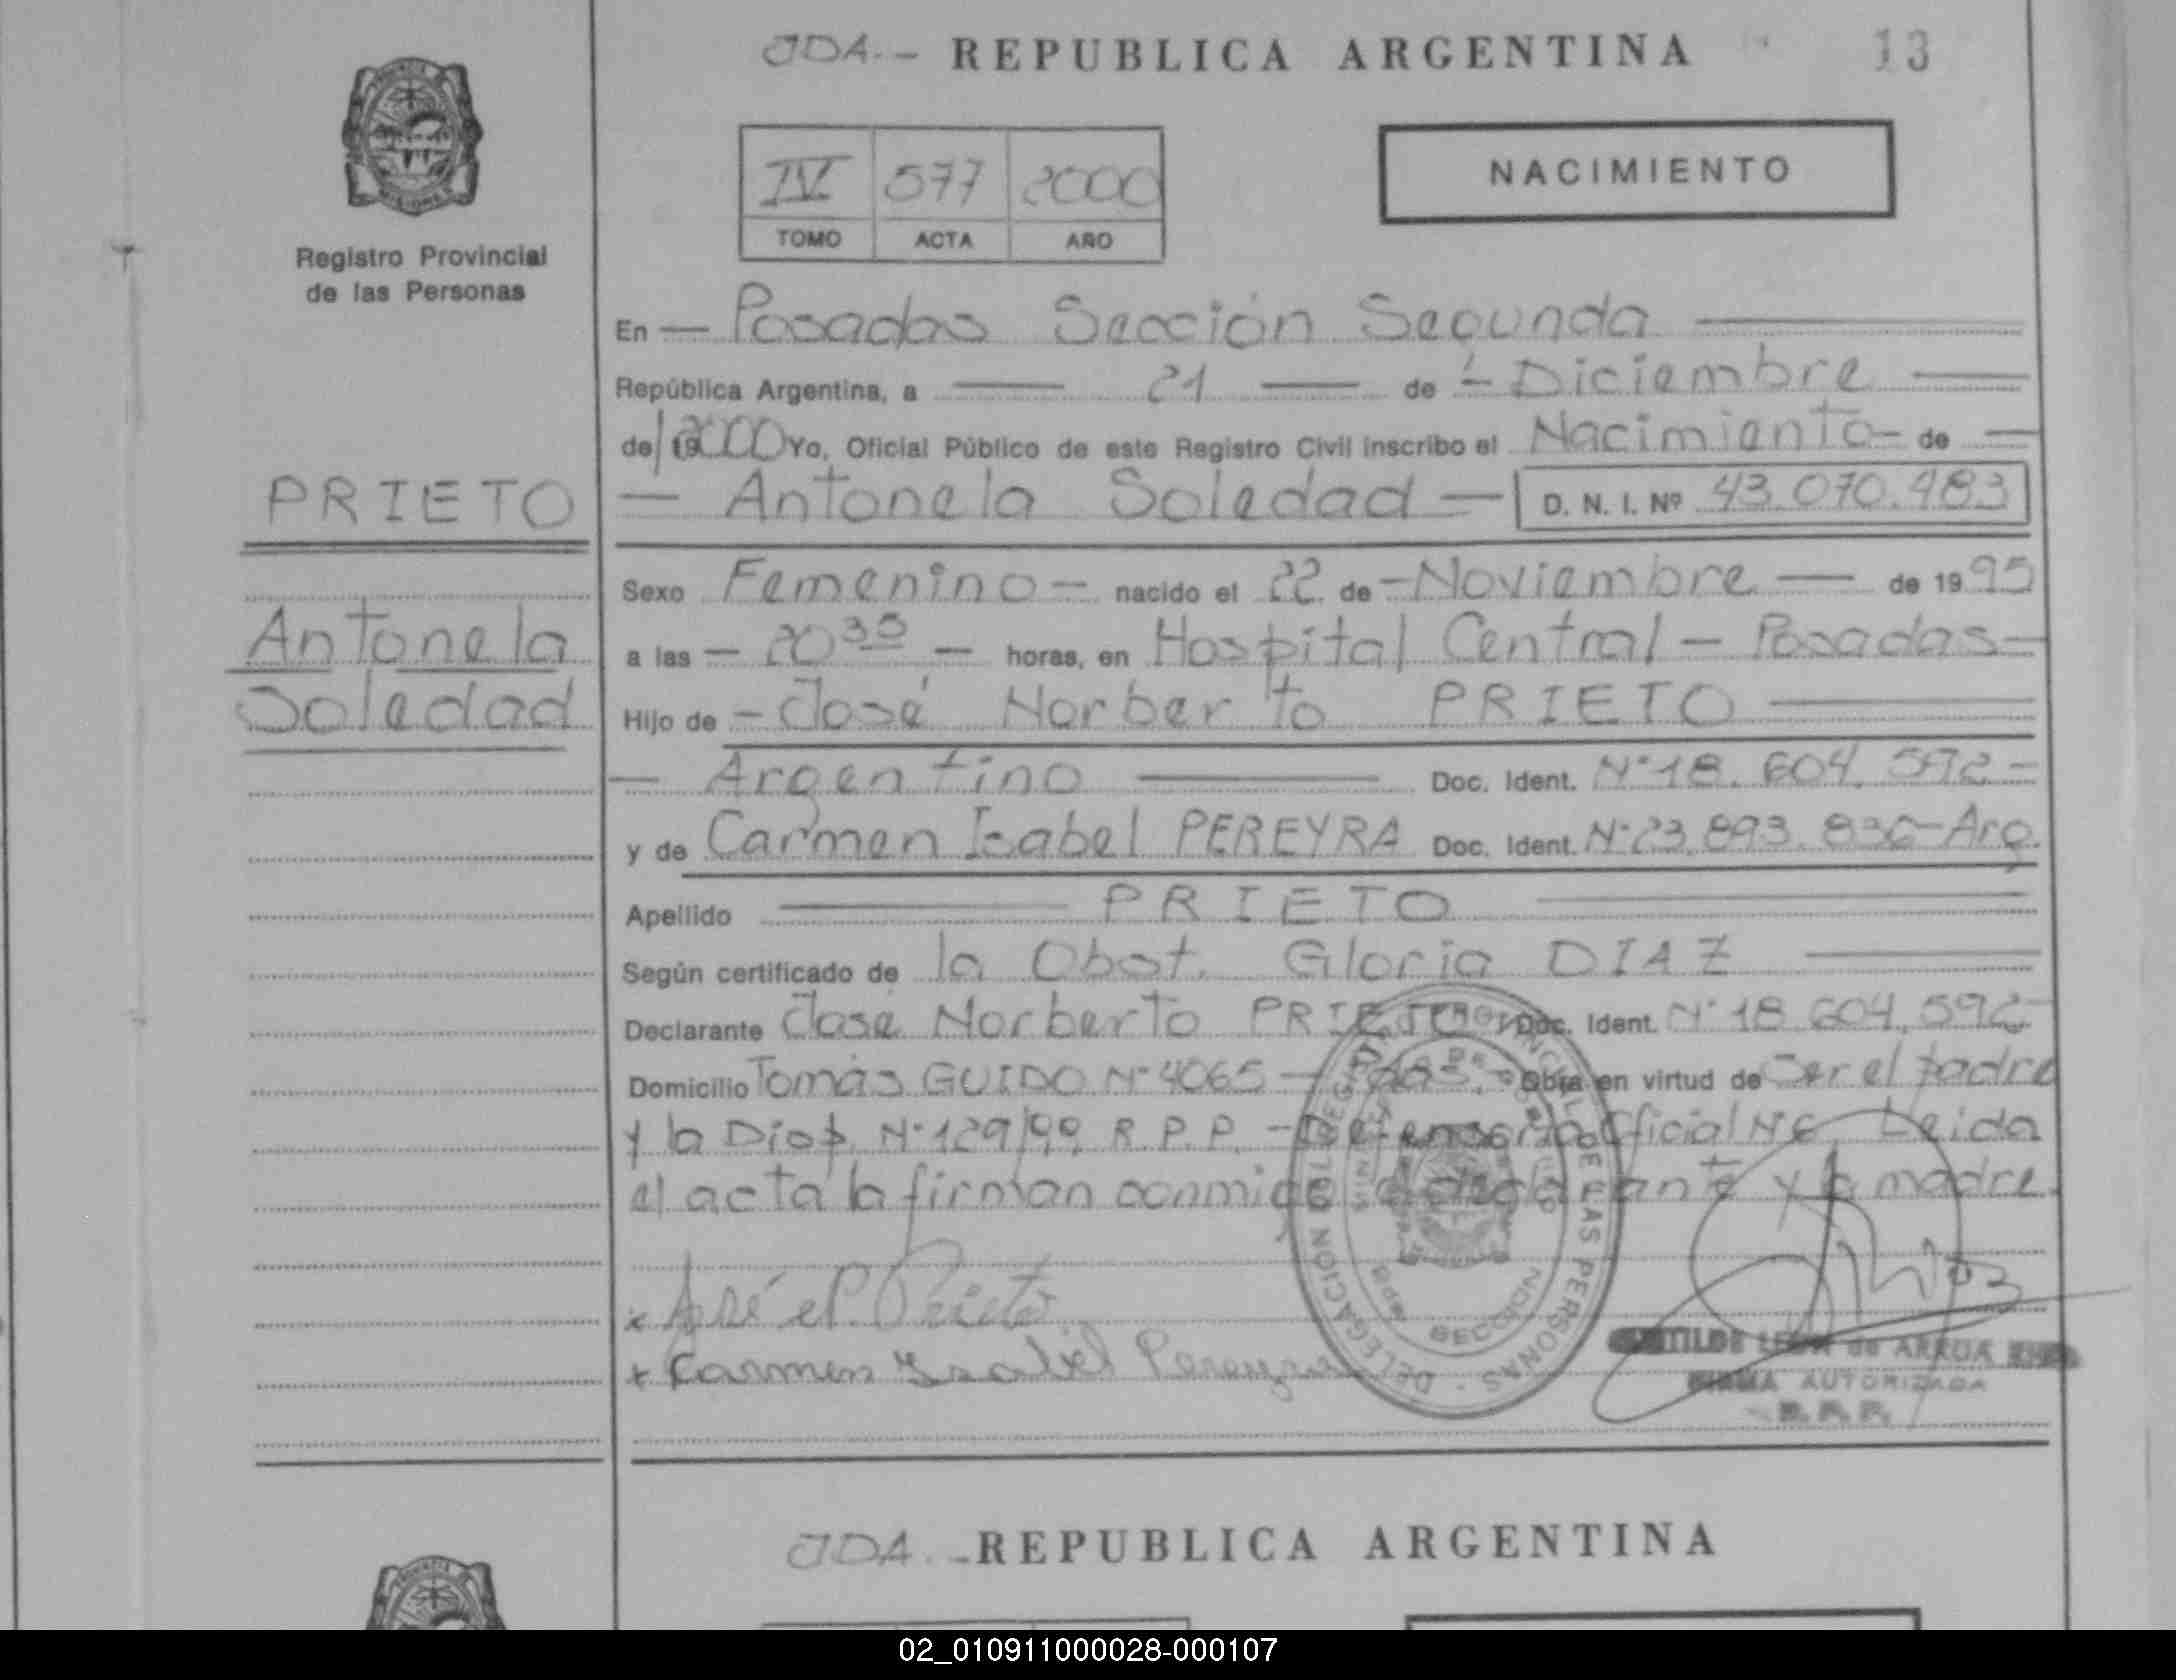 JDA.- REPUBLICA ARGENTINA 13
IV 577 2000
TOMO ACTA AÑO
NACIMIENTO
Registro Provincial
de las Personas
En — Posadas Sección Segunda —
República Argentina, a — 21 — de — Diciembre —
de 2000 Yo, Oficial Público de este Registro Civil inscribo el Nacimiento - de —
PRIETO
— Antonela Soledad — D. N. I. Nº 43.070.483
Antonela
Soledad
Sexo Femenino — nacido el 22 de — Noviembre — de 1995
a las — 20 35 — horas, en Hospital Central — Posadas —
Hijo de — José Norberto PRIETO —
— Argentino — Doc. Ident. Nº 18.604.592 —
y de Carmen Isabel PEREYRA Doc. Ident. Nº 23.893.836 - Arg.
Apellido — PRIETO —
Según certificado de la Obst. Gloria DIAZ —
Declarante José Norberto PRIETO Doc. Ident. Nº 18.604.592
Domicilio Tomás GUIDO Nº 4065 — Obra en virtud de ser el padre
y la Disp. Nº 129/99 R.P.P. - Defensoría Oficial Nº Leida
el acta la firman conmigo el declarante y la madre.
x José N. Prieto
x Carmen Isabel Pereyra
DELEGACION DEL REGISTRO PROVINCIAL DE LAS PERSONAS
SECCION
DE ARRUA
FIRMA AUTORIZADA
R. P. P.
JDA. - REPUBLICA ARGENTINA
02_010911000028-000107